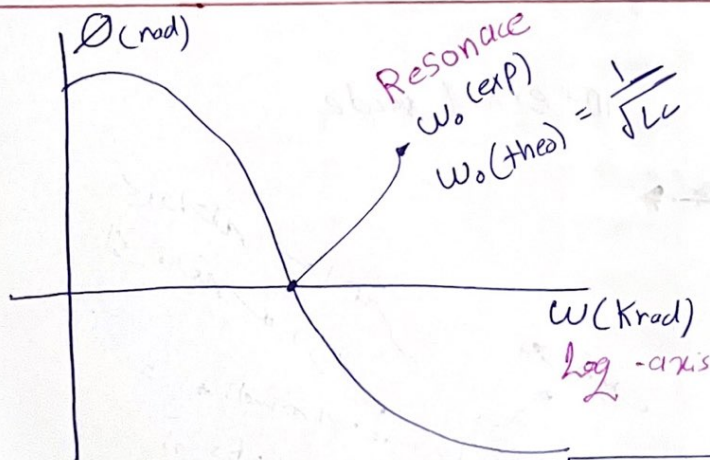 Ø(rad)
Resonace
ω₀ (exp)
ω₀ (theo) = 1/√LC
ω(Krad)
Log - axis